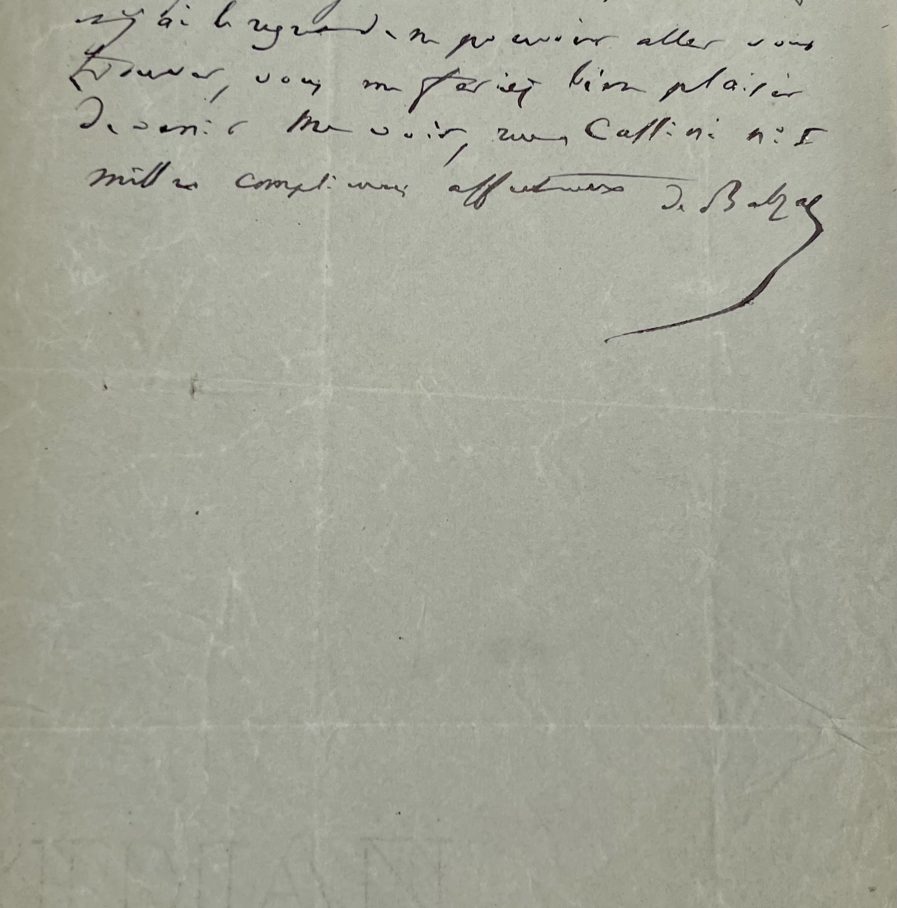 j'ai le regret de ne pouvoir aller vous
trouver, vous me feriez bien plaisir
de venir me voir, rue Cassini n: 1
mille compliments affectueux de Balzac